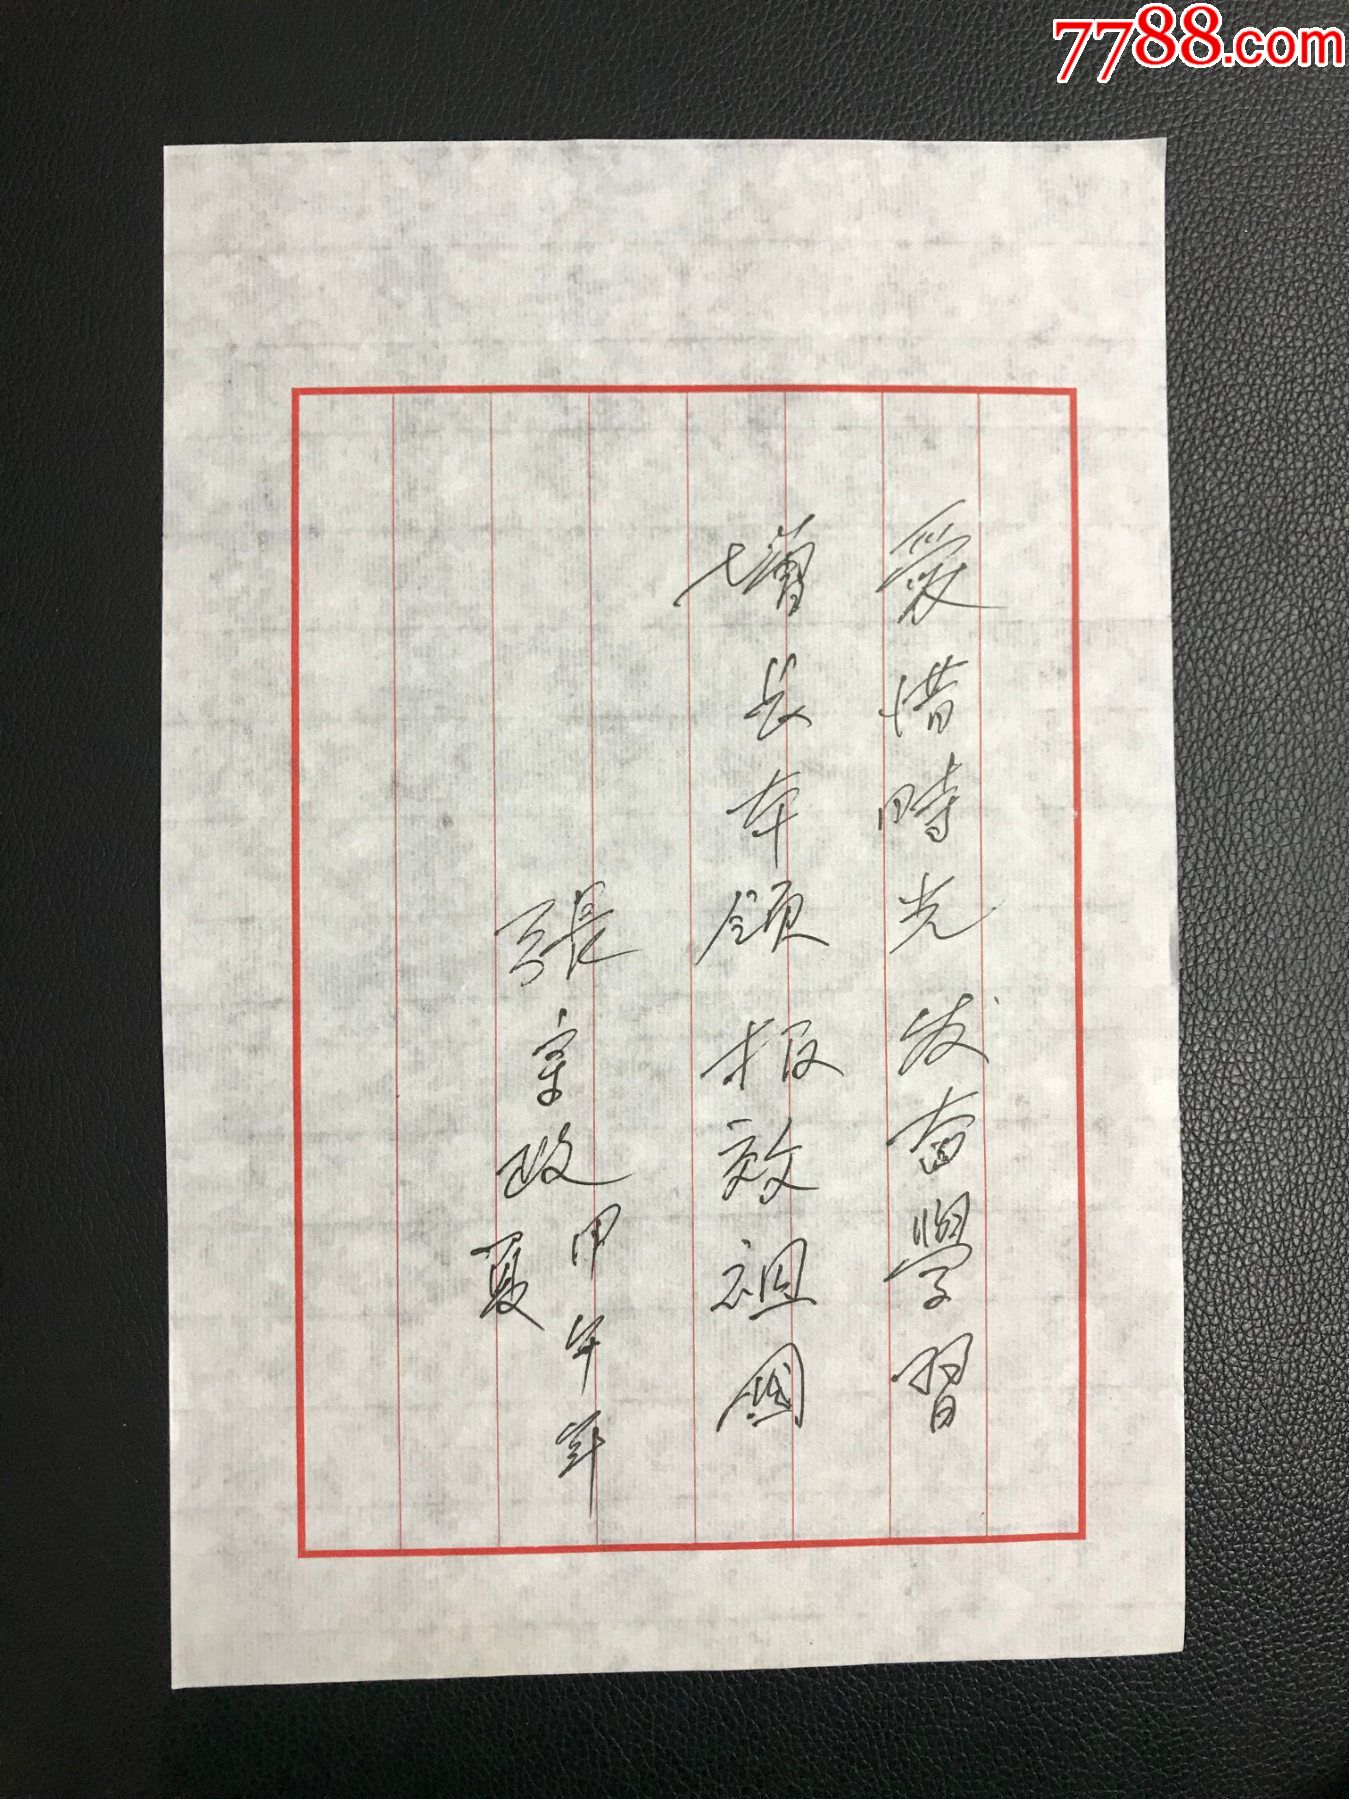 7788.com
爱惜時光发奋學習
增长本領报效祖國
張
甲午年
夏